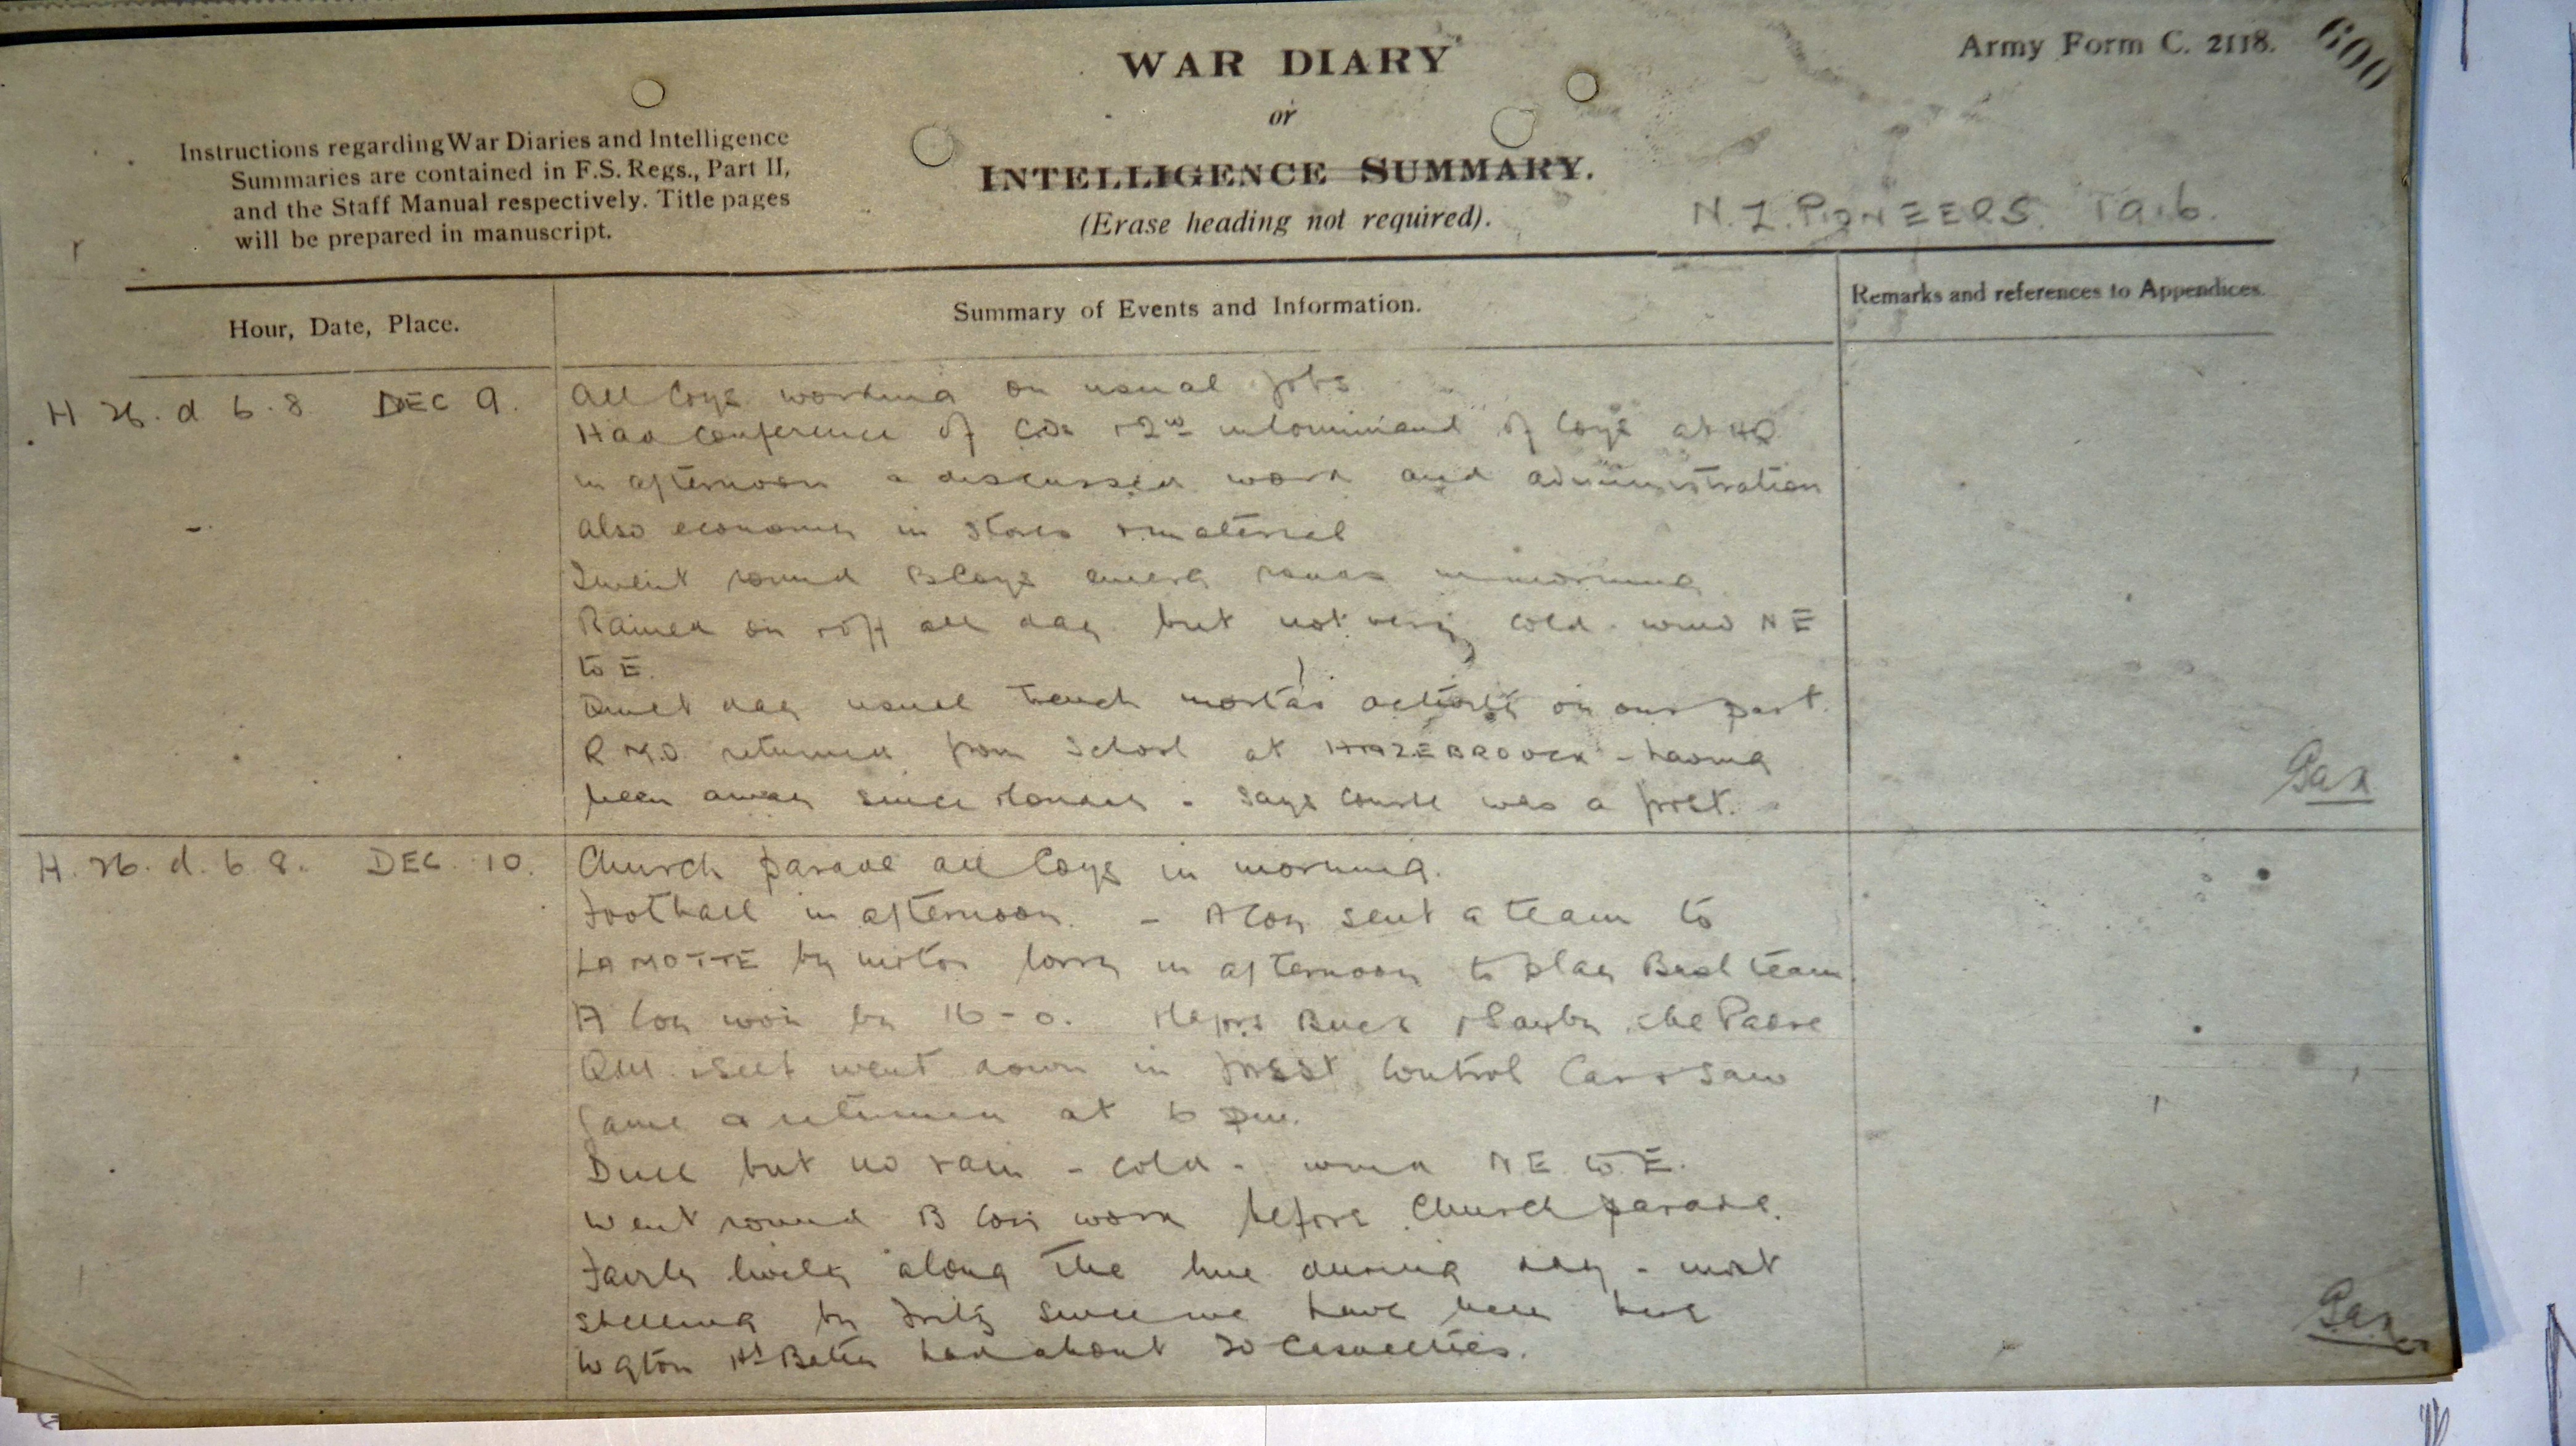 WAR DIARY
or
INTELLIGENCE SUMMARY.
(Erase heading not required).
Army Form C. 2118.
600
Instructions regarding War Diaries and Intelligence
Summaries are contained in F.S. Regs., Part II,
and the Staff Manual respectively. Title pages
will be prepared in manuscript.
N.Z. PIONEERS
Hour, Date, Place.
Summary of Events and Information.
Remarks and references to Appendices.
H 26. d 6.8 DEC 9.
All Coys working on usual jobs
Had conference of COs + 2nd in Command of Coys at HQ
in afternoon & discussed work and administration
also economy in stores & material
I went round B Coys in morning
Rained on & off all day but not very cold. wind NE
to E.
Quiet day usual trench mortar activity on our part.
R.M.O. returned from School at HAZEBROUCK - having
been away since Monday - says course was a frost.
H. 26. d. 6. 8. DEC. 10.
Church parade all Coys in morning.
Football in afternoon. - A Coy sent a team to
LA MOTTE by motor lorry in afternoon to play team
A Coy won by 16-0. Majors Buck & Saxby, the Padre
QM & self went down in Control Car & saw
game & returned at 6 pm.
Dull but no rain - cold - wind N.E. to E.
Went round B Coy work before Church parade.
Fairly lively along the line during day - most
shelling by Fritz since we have been here
Wgton Battn had about 20 casualties.